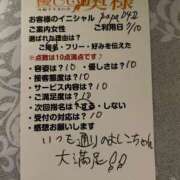 お客様のイニシャル papa D4D
ご案内女性 ご利用日 7/10
選ばれた理由は？
ご指名・フリー・好みを伝えた
※点数は10点満点です
容姿は？10 ・優しさは？10
態度は？10
サービス内容は？10
満足度は？10
次回指名は？する・しない
お店の対応は？10
感想お願いします
いつも通りのよしこちゃん
大満足